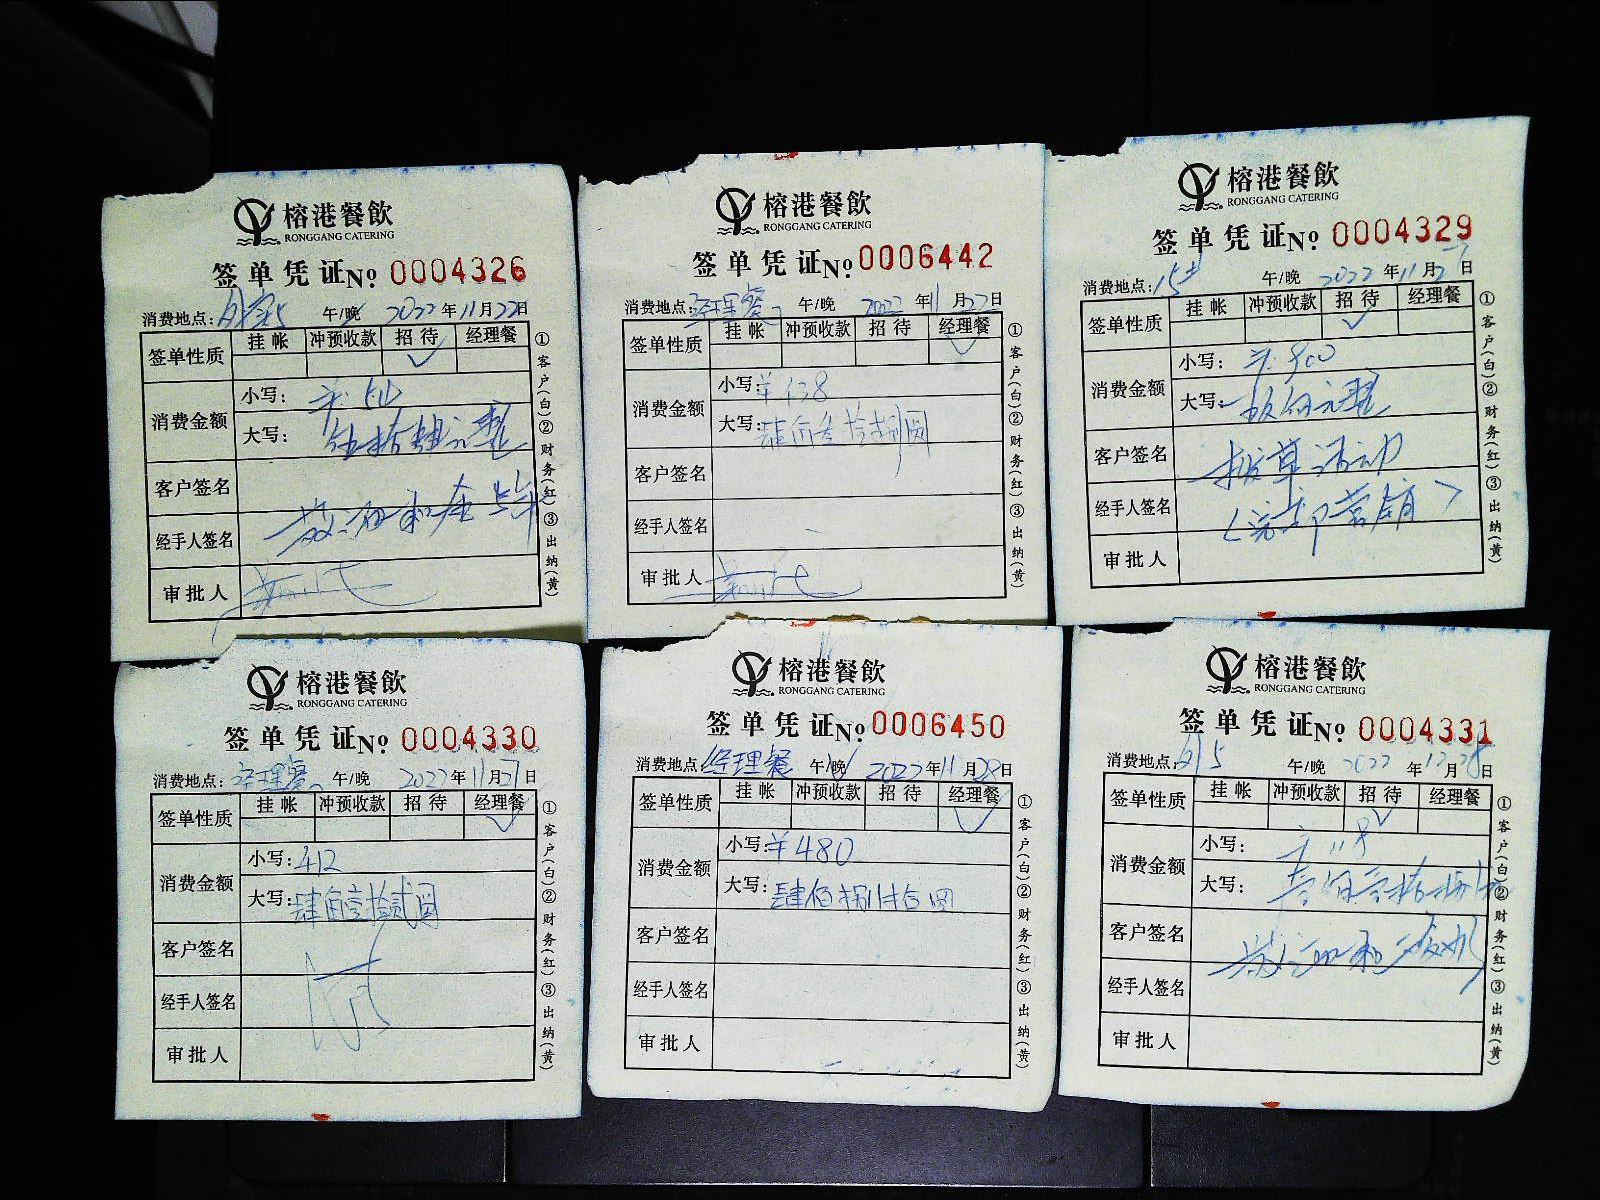 榕港餐飲
RONGGANG CATERING
签单凭证 No 0004326
消费地点: 午/晚 2022年11月22日
签单性质 挂帐 冲预收款 招待 经理餐
消费金额 小写:
大写: 伍拾肆元整
客户签名
经手人签名
审批人
①客户(白)②财务(红)③出纳(黄)
榕港餐飲
RONGGANG CATERING
签单凭证 No 0006442
消费地点: 经理餐 午/晚 2022年11月22日
签单性质 挂帐 冲预收款 招待 经理餐
消费金额 小写:
大写: 肆佰叁拾捌圆
客户签名
经手人签名
审批人
①客户(白)②财务(红)③出纳(黄)
榕港餐飲
RONGGANG CATERING
签单凭证 No 0004329
消费地点: 午/晚 2022年11月27日
签单性质 挂帐 冲预收款 招待 经理餐
消费金额 小写:
大写: 元整
客户签名 活动
经手人签名
审批人
①客户(白)②财务(红)③出纳(黄)
榕港餐飲
RONGGANG CATERING
签单凭证 No 0004330
消费地点: 经理餐 午/晚 2022年11月27日
签单性质 挂帐 冲预收款 招待 经理餐
消费金额 小写: 412
大写: 肆佰壹拾贰圆
客户签名
经手人签名
审批人
①客户(白)②财务(红)③出纳(黄)
榕港餐飲
RONGGANG CATERING
签单凭证 No 0006450
消费地点: 经理餐 午/晚 2022年11月28日
签单性质 挂帐 冲预收款 招待 经理餐
消费金额 小写: ¥480
大写: 肆佰捌拾 圆
客户签名
经手人签名
审批人
①客户(白)②财务(红)③出纳(黄)
榕港餐飲
RONGGANG CATERING
签单凭证 No 0004331
消费地点: 午/晚 2022年 月28日
签单性质 挂帐 冲预收款 招待 经理餐
消费金额 小写: 118
大写: 壹佰壹拾捌
客户签名
经手人签名
审批人
①客户(白)②财务(红)③出纳(黄)